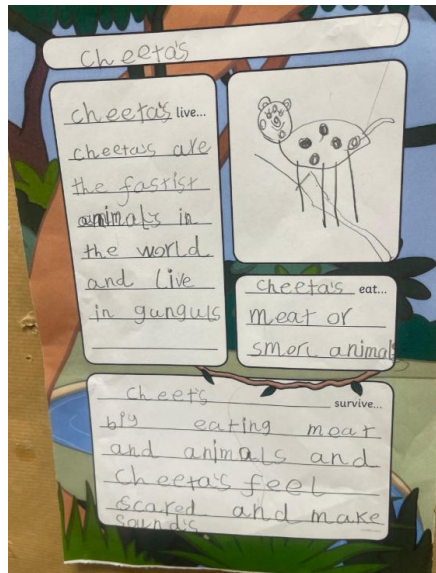 cheeta's
cheeta's live...
cheeta's are
the fastist
animals in
the world
and live
in gunguls
cheeta's eat...
meat or
smorl animals
cheets survive...
by eating meat
and animals and
cheeta's feel
scared and make
sounds